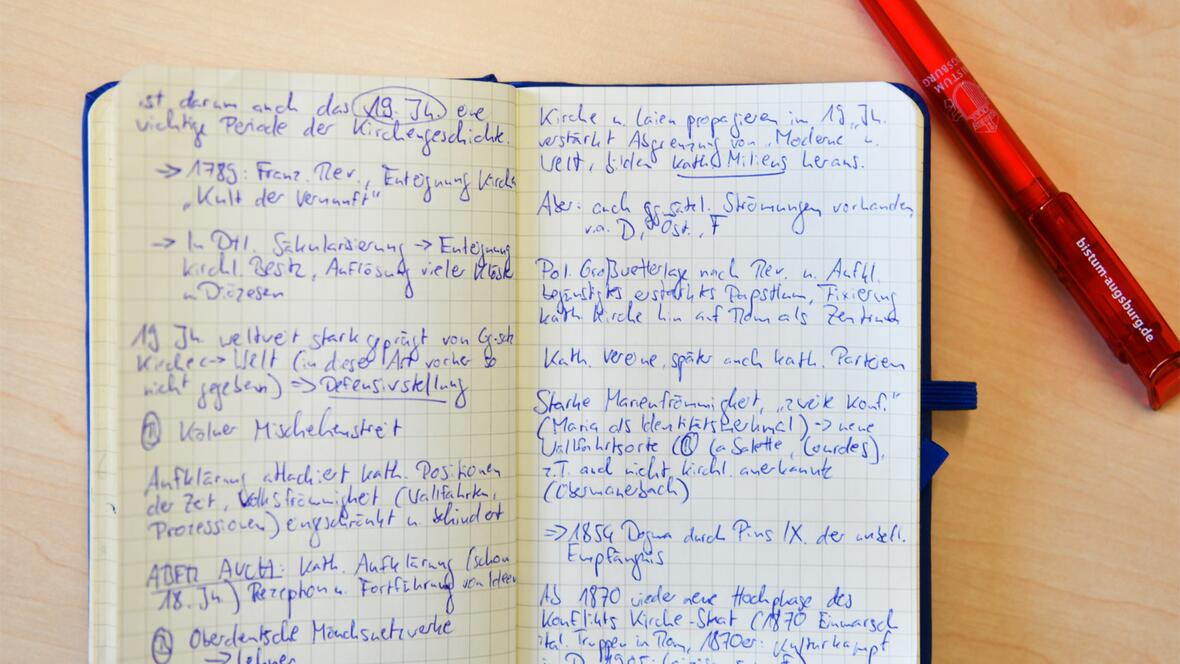 ist darum auch das 19. Jh. eine
wichtige Periode der Kirchengeschichte.
=> 1789: Franz. Rev., Enteignung Kirche
„Kult der Vernunft"
-> In Dtl. Säkularisierung -> Enteignung
kirchl. Besitz, Auflösung vieler Klöst
u. Diözesen
19. Jh. weltweit stark geprägt von Ggs.
Kirche <-> Welt (in dieser Art vorher so
nicht gegeben) => Defensivstellung
Kölner Mischehenstreit
Aufklärung attackiert kath. Positionen
der Zeit, Volksfrömmigkeit (Wallfahrten,
Prozessionen) eingeschränkt u. behindert
ABER AUCH: Kath. Aufklärung (schon
18. Jh.) Rezeption u. Fortführung von Ideen
Oberdeutsche Mönchsnetzwerke
->
Kirche u. Laien propagieren im 19. Jh.
verstärkt Abgrenzung von „Moderne" u.
Welt, bilden kath. Milieus heraus.
Aber: auch Strömungen vorhanden,
v.a. D, Öst., F
Pol. Großwetterlage nach Rev. u. Aufkl.
begünstigt erstarktes Papsttum, Fixierung
kath. Kirche hin auf Rom als Zentrum
Kath. Vereine, später auch kath. Parteien
Starke Marienfrömmigkeit, „zweite Konf."
(Maria als Identitätsmerkmal) -> neue
Wallfahrtsorte (La Salette, Lourdes),
z.T. auch nicht kirchl. anerkannte
=> 1854 Dogma durch Pius IX. der unbefl.
Empfängnis
Ab 1870 wieder neue Hochphase des
Konflikts Kirche-Staat (1870 Einmarsch
ital. Truppen in Rom, 1870er: Kulturkampf
in D, 1905: F)
BISTUM
AUGSBURG
bistum-augsburg.de